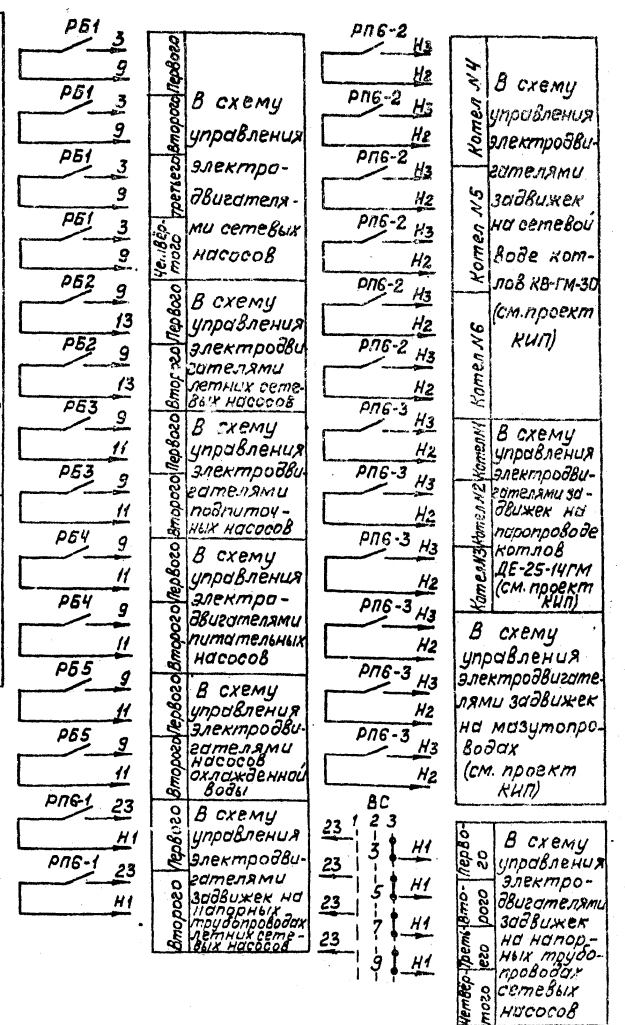 РБ1 3
9
РБ1 3
9
РБ1 3
9
РБ1 3
9
РБ2 9
13
РБ2 9
13
РБ3 9
11
РБ3 9
11
РБ4 9
11
РБ4 9
11
РБ5 9
11
РБ5 9
11
РП6-1 23
Н1
РП6-1 23
Н1
Первого
Второго
третьего
Четвёр-
того
В схему
управления
электро-
двигателя-
ми сетевых
насосов
Первого
Второго
В схему
управления
электродви
гателями
летних сете-
вых насосов
Первого
Второго
В схему
управления
электродви-
гателями
подпиточ-
ных насосов
Первого
Второго
В схему
управления
электро-
двигателями
питательных
насосов
Первого
Второго
В схему
управления
электродви-
гателями
насосов
охлажденной
воды
Первого
Второго
В схему
управления
электродви-
гателями
задвижек на
напорных
трубопроводах
летних сете-
вых насосов
РП6-2 Н3
Н2
РП6-2 Н3
Н2
РП6-2 Н3
Н2
РП6-2 Н3
Н2
РП6-2 Н3
Н2
РП6-2 Н3
Н2
РП6-3 Н3
Н2
РП6-3 Н3
Н2
РП6-3 Н3
Н2
РП6-3 Н3
Н2
РП6-3 Н3
Н2
РП6-3 Н3
Н2
ВС
1 2 3
23 3 Н1
23 5 Н1
23 7 Н1
23 9 Н1
Котел N4
Котел N5
Котел N6
В схему
управления
электродви-
гателями
задвижек
на сетевой
воде кот-
лов КВ-ГМ-30
(см. проект
КИП)
Котел N1
Котел N2
Котел N3
В схему
управления
электродви-
гателями за-
движек на
паропроводе
котлов
ДЕ-25-14ГМ
(см. проект
КИП)
В схему
управления
электродвигате-
лями задвижек
на мазутопро-
водах
(см. проект
КИП)
Перво-
го
Вто-
рого
Треть-
его
Четвёр-
того
В схему
управления
электро-
двигателями
задвижек
на напор-
ных трубо-
проводах
сетевых
насосов